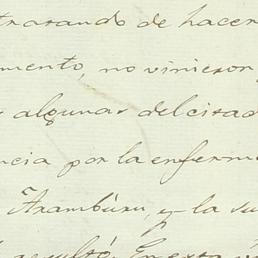 tratando de hacer
mento, no vinieron
algunas del citad
ncia por la enferm
Aramburu, y la su
resultó. En esta